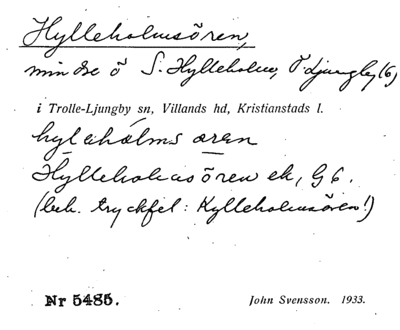 Hylleholmsören,
mindre ö S. Hylleholm, Ö. Ljungby (6)
i Trolle-Ljungby sn, Villands hd, Kristianstads l.
hyləhålms örən
Hylleholmsören ek, G 6.
(bek. tryckfel: Kylleholmsören!)
Nr 5485.
John Svensson. 1933.